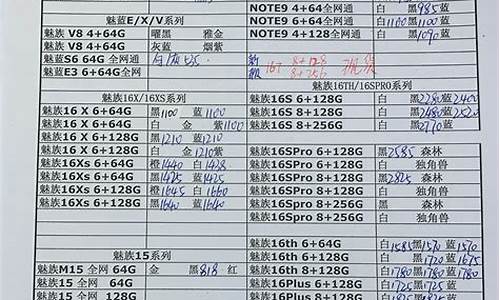 NOTE9 4+64全网通 白 黑985蓝
魅蓝E/X/V系列 NOTE9 6+64全网通 白1100黑1100蓝
魅族 V8 4+64G 曜黑 雅金 NOTE9 4+128全网通 白 黑1090蓝
魅族 V8 4+64G 灰蓝 烟紫
魅蓝S6 64G 全网通 16T 8+128
魅蓝E3 6+64G全网通 8+256
魅族16X/16XS系列 魅族16TH/16SPRO系列
魅族16 X 6+64G 黑1100 蓝1100 魅族16S 6+128G 白 黑2280蓝2400
魅族16 X 6+64G 白 金 紫1100 魅族16S 8+128G 白 黑2480蓝2520
魅族16 X 6+128G 黑1210 蓝1210 魅族16S 8+256G 白 黑2770蓝
魅族16 X 6+128G 白 金 1210紫
魅族16Xs 6+64G 橙1440 白1428 魅族16SPro 6+128G 黑2585 森林
魅族16Xs 6+64G 黑1425 蓝1425 魅族16SPro 6+128G 白 独角兽
魅族16Xs 6+128G 橙1645 白1660 魅族16SPro 8+128G 黑2825 森林
魅族16Xs 6+128G 黑1640 蓝1640 魅族16SPro 8+128G 白 独角兽
魅族16SPro 8+256G 黑 森林
魅族16SPro 8+256G 白 独角兽
魅族15系列 魅族16th 6+64G 白1585黑1570蓝1570
魅族M15 全网 64G 金 黑818 红 魅族16th 6+128G 白 黑1720蓝1675
魅族15 全网 64G 魅族16th 8+128G 白1780黑1780蓝1780
魅族15 全网 128G 魅族16Plus 6+128G 白1725黑1725蓝